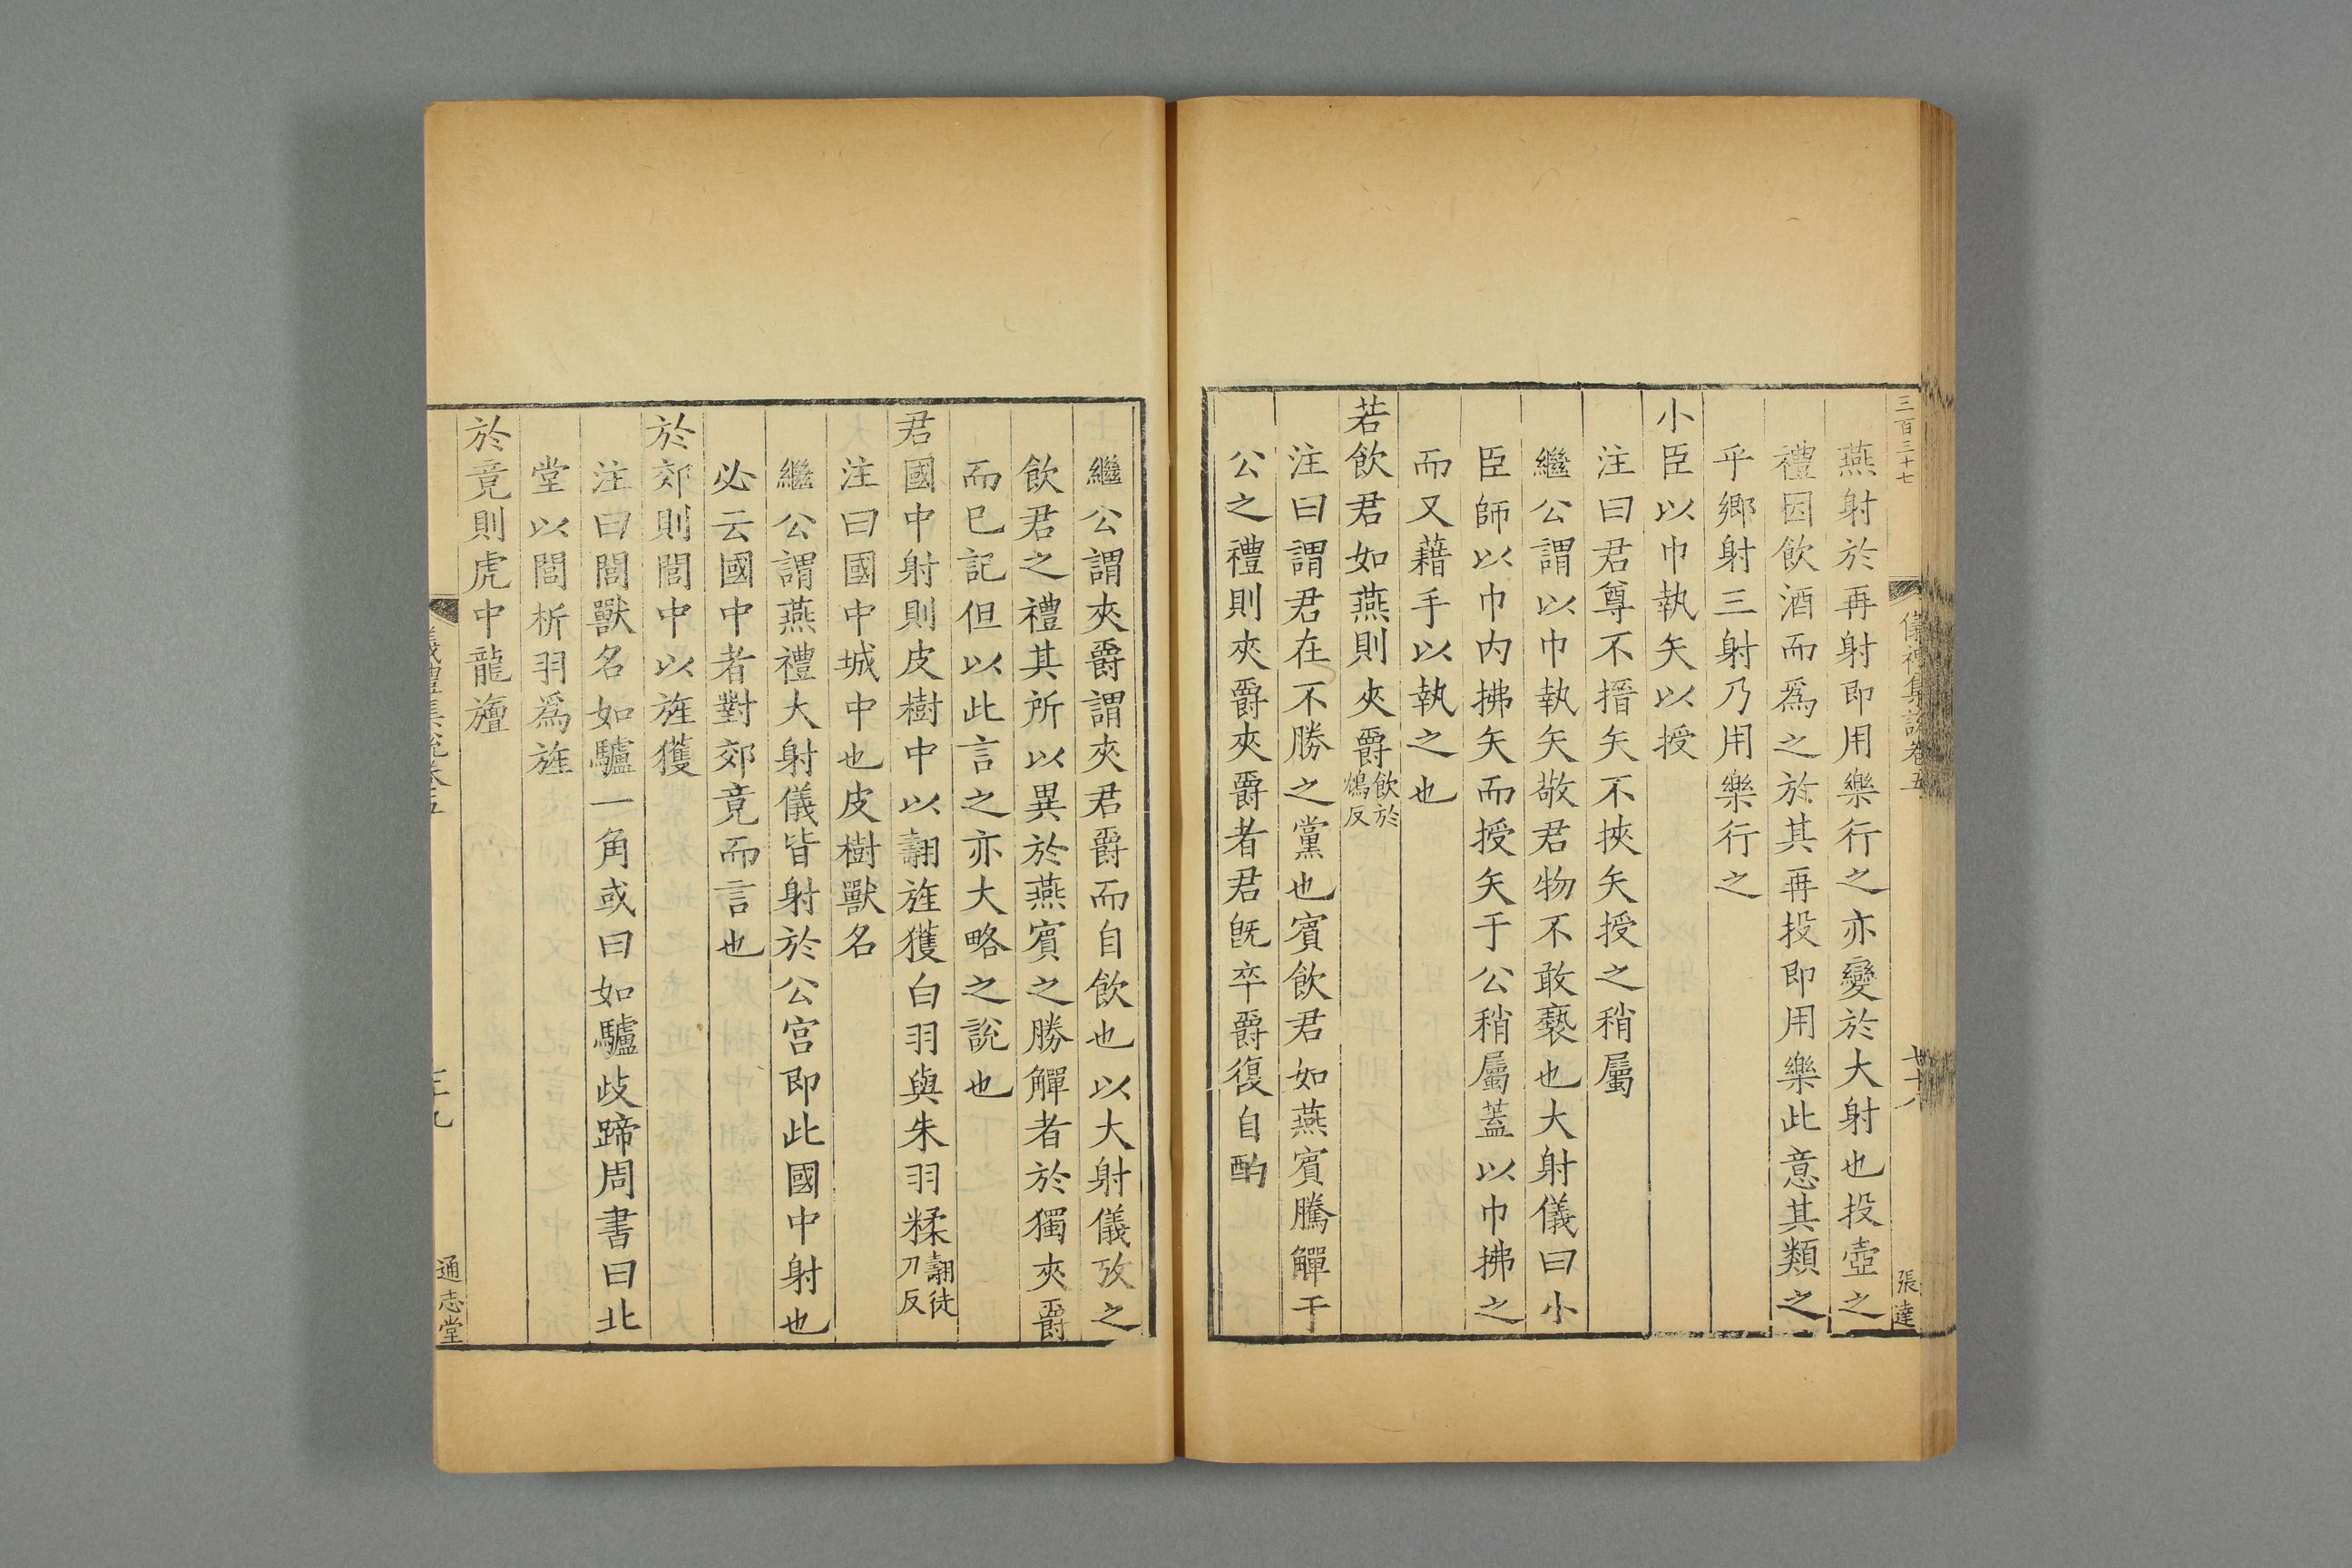 三百三十七
儀禮集說卷五
張達
燕射於再射即用樂行之亦變於大射也投壺之
禮因飲酒而爲之於其再投即用樂此意其類之
乎鄉射三射乃用樂行之
小臣以巾執矢以授
注曰君尊不搢矢不挾矢授之稍屬
繼公謂以巾執矢敬君物不敢褻也大射儀曰小
臣師以巾内拂矢而授矢于公稍屬蓋以巾拂之
而又藉手以執之也
若飲君如燕則夾爵飲於鴆反
注曰謂君在不勝之黨也賓飲君如燕賓騰觶于
公之禮則夾爵夾爵者君旣卒爵復自酌
繼公謂夾爵謂夾君爵而自飲也以大射儀攷之
飲君之禮其所以異於燕賓之勝觶者於獨夾爵
而巳記但以此言之亦大略之說也
君國中射則皮樹中以翿旌獲白羽與朱羽糅翿徒刀反
注曰國中城中也皮樹獸名
繼公謂燕禮大射儀皆射於公宫即此國中射也
必云國中者對郊竟而言也
於郊則閭中以旌獲
注曰閭獸名如驢一角或曰如驢歧蹄周書曰北
堂以閭析羽爲旌
於竟則虎中龍旜
儀禮集說卷五
通志堂